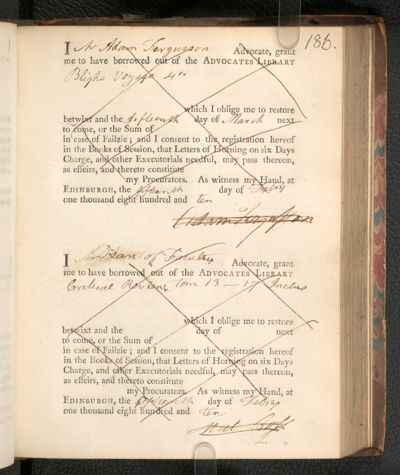 186.
I Mr Adam Fergusson Advocate, grant
me to have borrowed out of the ADVOCATES LIBRARY
Blighs Voyage 4to
which I oblige me to restore
betwixt and the fifteenth day of March next
to come, or the Sum of
in case of Failzie; and I consent to the registration hereof
in the Books of Session, that Letters of Horning on six Days
Charge, and other Executorials needful, may pass thereon,
as effeirs, and thereto constitute
my Procurators. As witness my Hand, at
EDINBURGH, the fifteenth day of Febry
one thousand eight hundred and ten
Adam Fergusson
I of Advocate, grant
me to have borrowed out of the ADVOCATES LIBRARY
tom 13 — 17
which I oblige me to restore
betwixt and the day of next
to come, or the Sum of
in case of Failzie; and I consent to the registration hereof
in the Books of Session, that Letters of Horning on six Days
Charge, and other Executorials needful, may pass thereon,
as effeirs, and thereto constitute
my Procurators. As witness my Hand, at
EDINBURGH, the day of Febry
one thousand eight hundred and ten